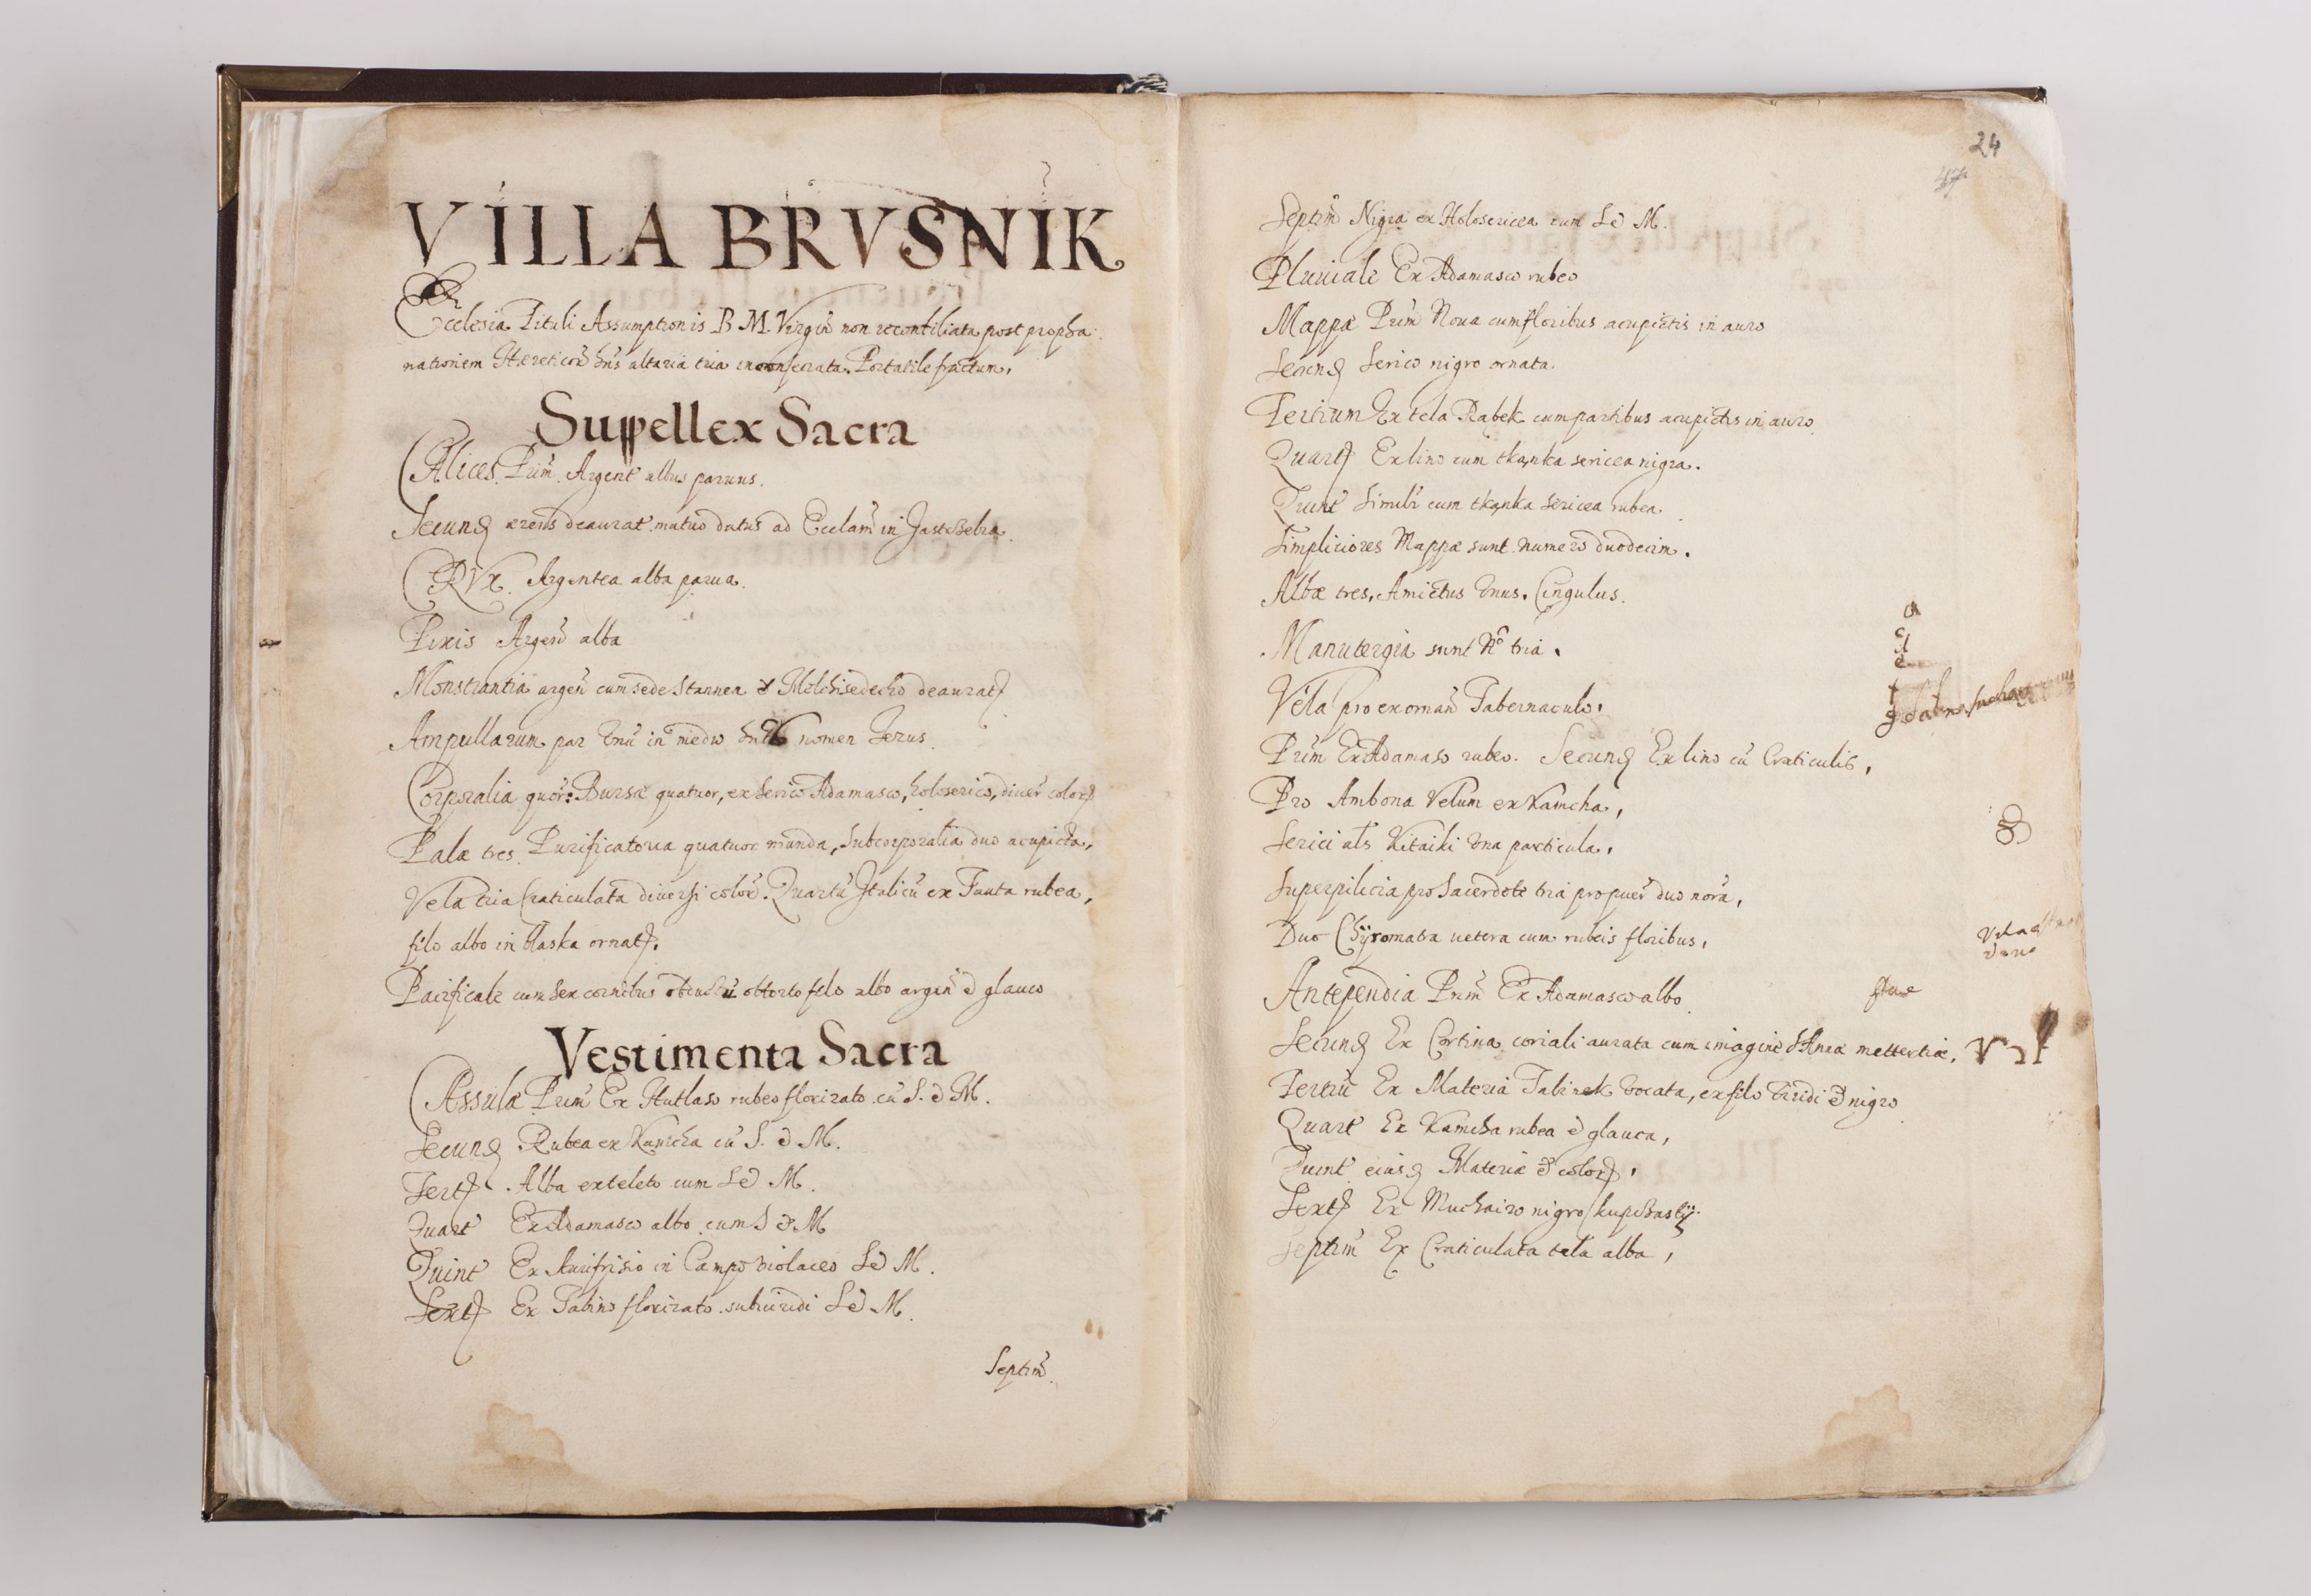 VILLA BRVSNIK
Ecclesia Tituli Assumptionis B M. Virgin non reconsiliata post propha
nationem Hæreticor hns altaria tria inconsecrata. Portatile fractum.
Suppellex Sacra
CAlices. Prim. Argent albus paruus.
Secund æreus deaurat mutuo datus ad Ecclam in
CRVX. Argentea alba parua.
Pixis Argen alba
Monstrantia argen cum sede Stannea & Melchisedecho deaurat
Ampullarum par vnu in medio nomen Iezus.
Corporalia quor: Bursæ quatuor, ex serico Adamasco, holoserico, diuer color
Palæ tres. Purificatoria quatuor munda, Subcorporalia duo acupicta,
Vela tria Craticulata diuersi color. Quartu Italicu ex Fanta rubea,
filo albo in blaska ornat.
Pacificale cum sex cornibus obtorto filo albo argen & glauco
Vestimenta Sacra
CAssulæ Prim Ex Hutlaso rubeo florizato cu S. & M.
Secund Rubea ex Kamcha cu S. & M.
Tert. Alba ex teleto cum S & M.
Quart Ex Adamasco albo cum S & M
Quint Ex Aurifrisio in Campo violaceo S & M.
Sext Ex Tabino florizato subuiridi S & M.
Septim.
24
47
Septim Nigra ex Holosericea cum S & M.
Pluuiale Ex Adamasco rubeo
Mappæ Prim Noua cum floribus acupictis in auro
Secund Serico nigro ornata.
Tertium Ex tela Rąbek cum partibus acupictis in auro
Quart Ex lino cum tkąnka sericea nigra.
Quint Simili cum tkąnka sericea rubea.
Simpliciores Mappæ sunt numero duodecim.
Albæ tres, Amictus vnus. Cingulus.
Manutergia sunt No tria.
Vela pro exornan Tabernaculo.
Prim Ex Adamaso rubeo. Secund Ex lino cu Craticulis,
Pro Ambona Velum ex Kamcha,
Serici als Kitaiki vna particula,
Superpilicia pro Sacerdote tria pro puer duo nora,
Duo Chyromatra uetera cum rubeis floribus,
Antependia Prim Ex Adamasco albo
Secund Ex Cortina coriali aurata cum imagine S Annæ mettertiæ,
Tertiu Ex Materia Tabinek vocata, ex filo viridi & nigro
Quart Ex Kamcha rubea & glauca,
Quint eiusd Materiæ & color,
Sext Ex Muchairo nigro
Septim Ex Craticulata tela alba,